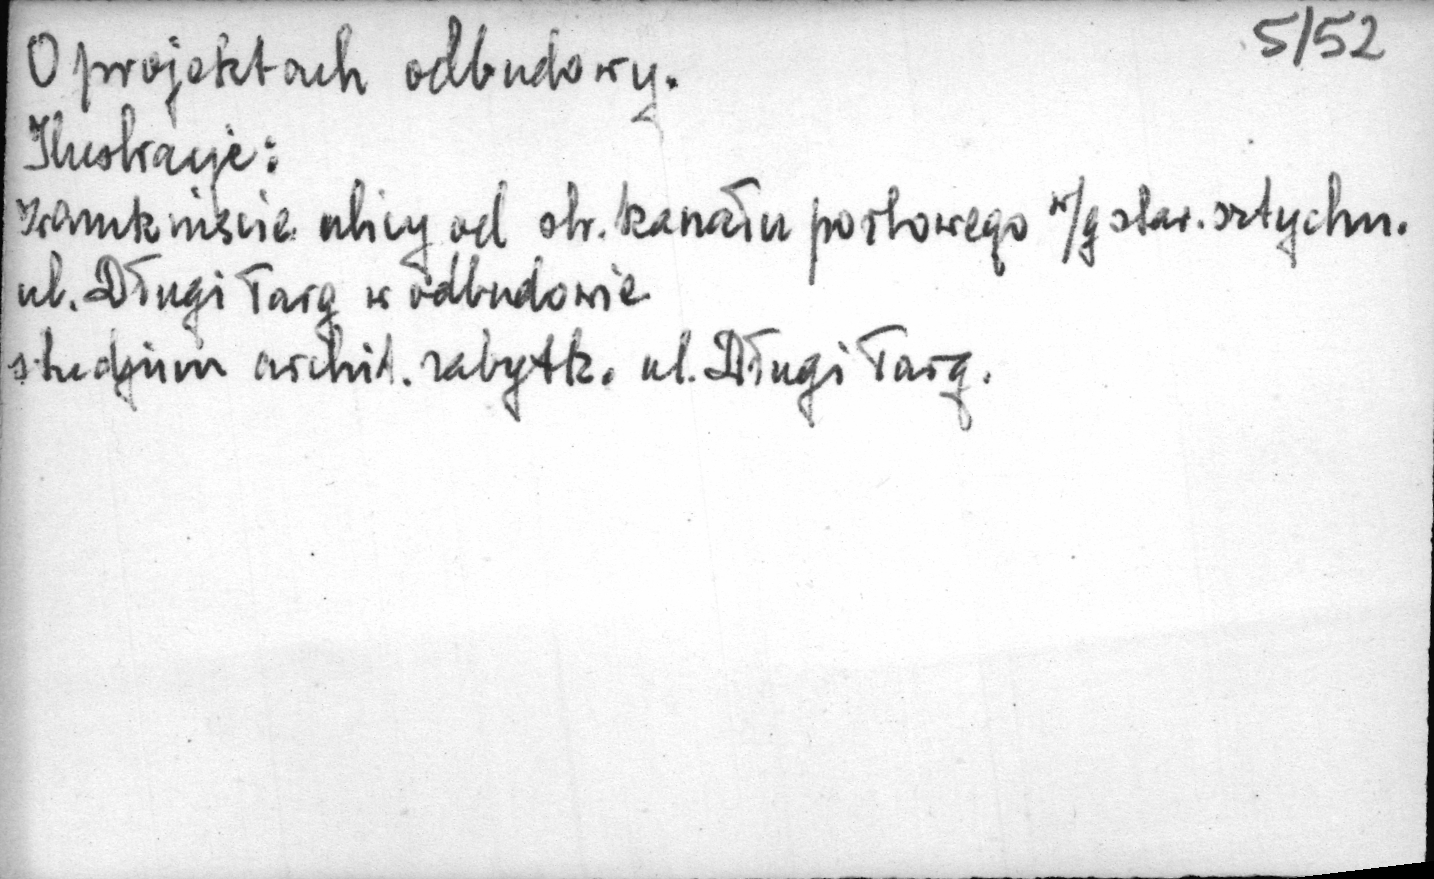 5/52
O projektach odbudowy.
Ilustracje:
zamknięcie ulicy od str. kanału portowego w/g star. sztychu.
ul. Długi Targ w odbudowie
studium archit. zabytk. ul. Długi Targ.